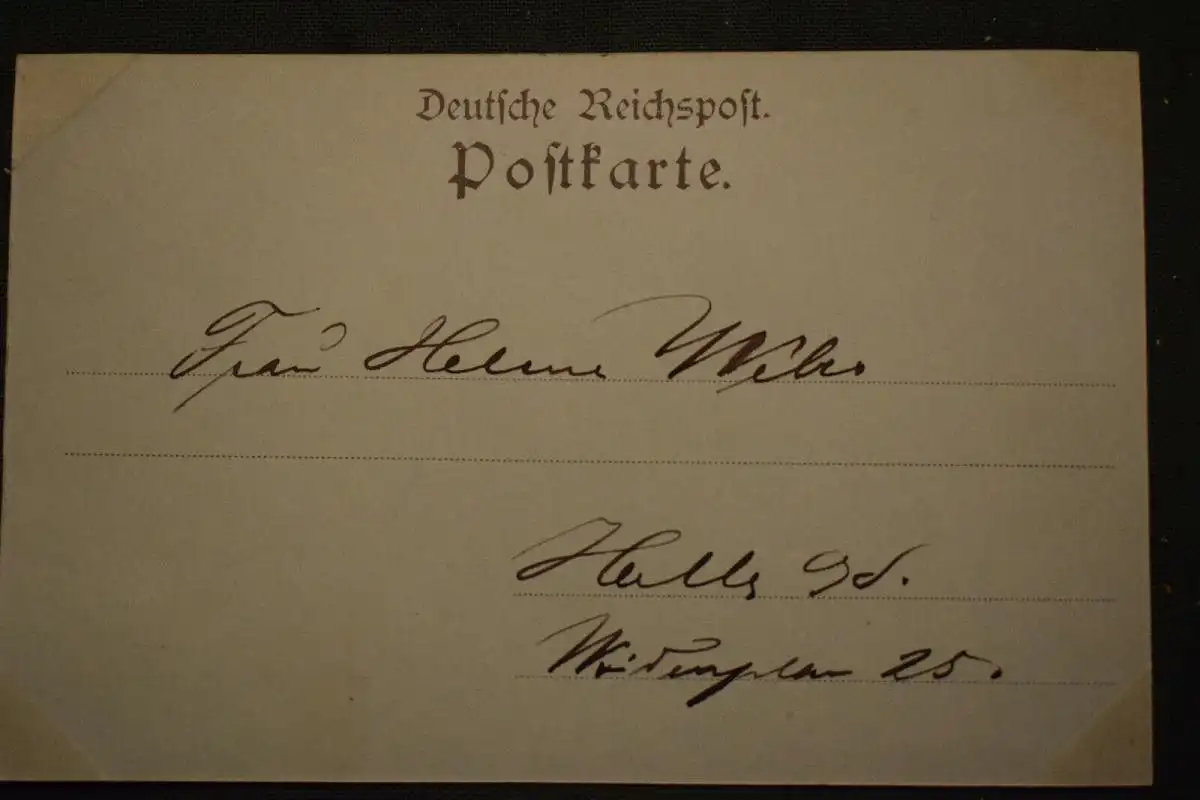 Deutsche Reichspost.
Postkarte.
Frau Helene
Halle
Weidenplan 25.